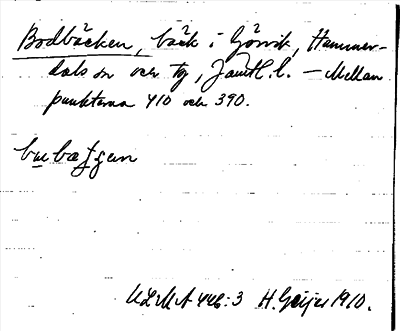 Bodbäcken, bäck i Görvik, Hammer-
dals sn och tg, Jämtl. l. – Mellan
punkterna 410 och 390.
bubaʒʒen
ULMA 446:3 H. Geijer 1910.